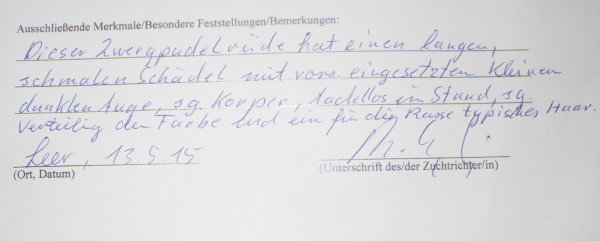 Ausschließende Merkmale/Besondere Feststellungen/Bemerkungen:
Dieser Zwergpudelrüde hat einen langen,
schmalen Schädel mit vorz. eingesetzten kleinen
dunklen Auge, sg. Körper, tadellos in Stand, sg.
Verteilung der Farbe und ein für die Rasse typisches Haar.
Leer, 13.5.15
(Ort, Datum) (Unterschrift des/der Zuchtrichter/in)